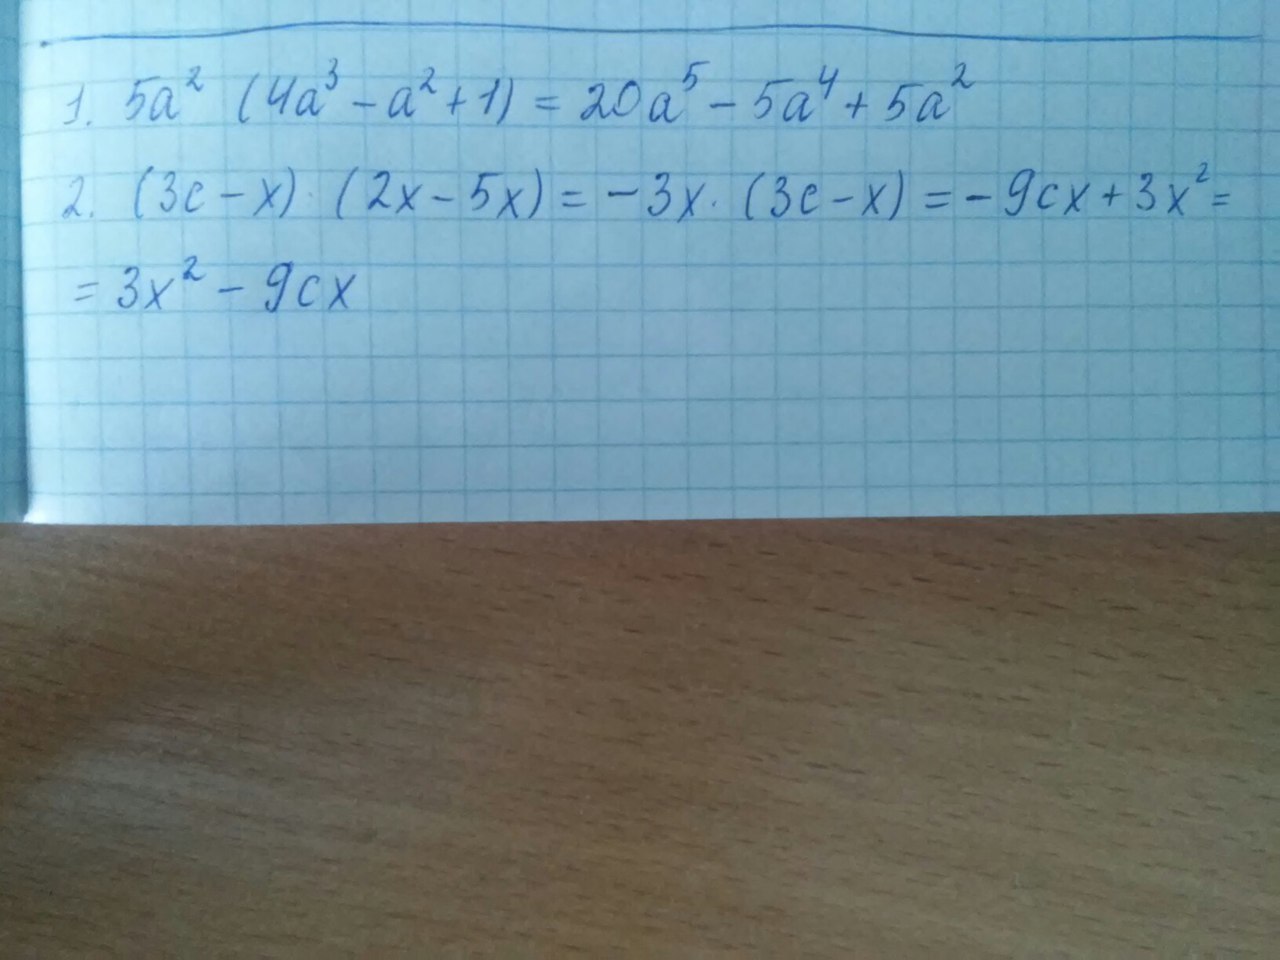 1. 5a² (4a³ – a² + 1) = 20a⁵ – 5a⁴ + 5a²
2. (3c – x) · (2x – 5x) = – 3x · (3c – x) = – 9cx + 3x² =
= 3x² – 9cx